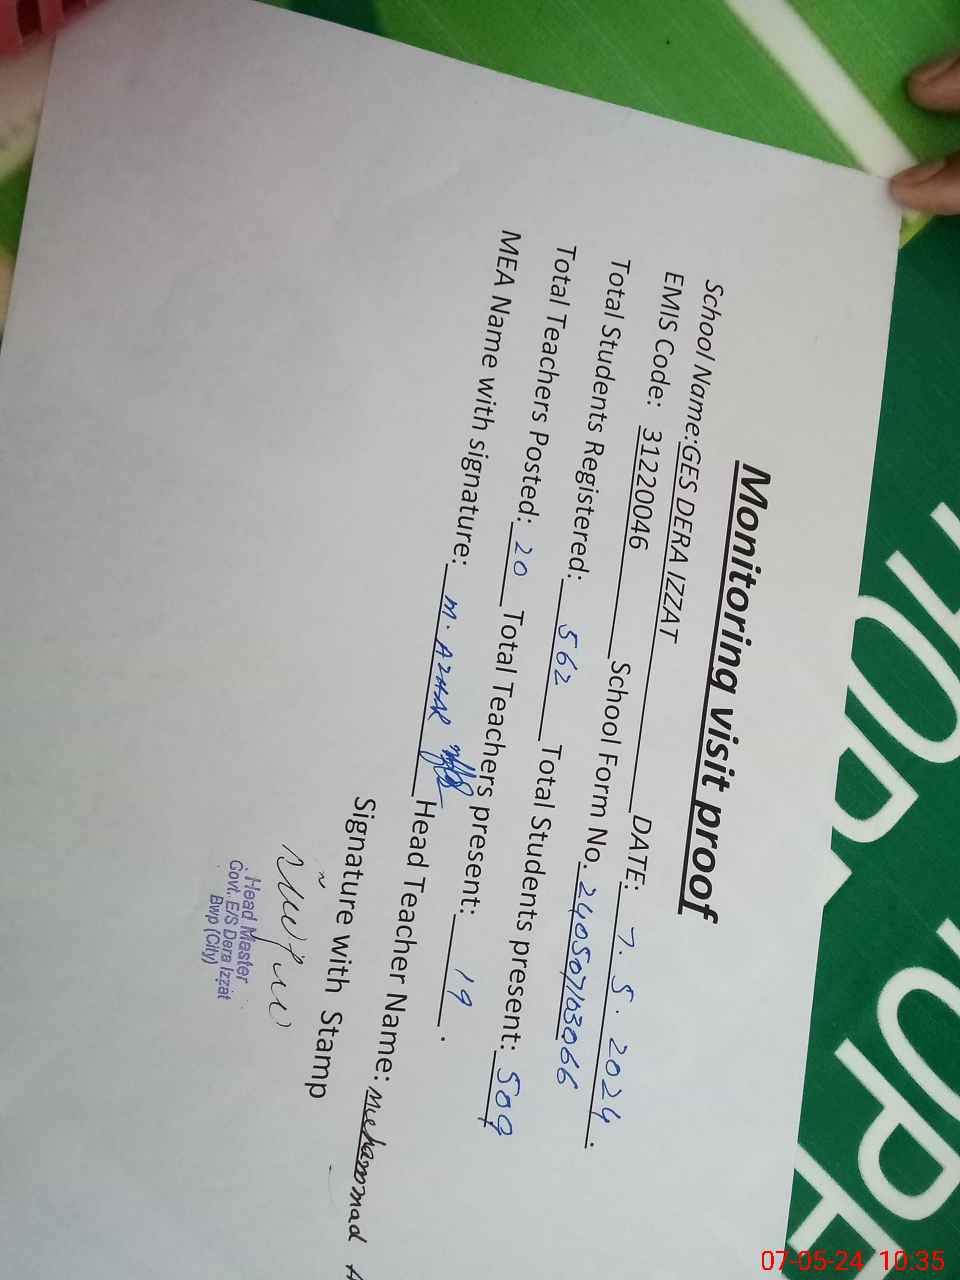 Monitoring visit proof
School Name:GES DERA IZZAT
EMIS Code: 31220046 DATE: 7. 5. 2024.
Total Students Registered: 562 School Form No. 240507103066
Total Teachers Posted: 20 Total Students present: 509
MEA Name with signature: M. AZHAR Total Teachers present: 19.
Head Teacher Name: Muhammad
Signature with Stamp
Head Master
Govt. E/S Dera Izzat
Bwp (City)
07-05-24 10:35